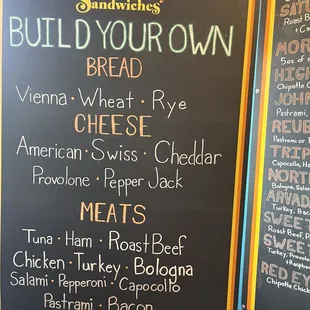 Sandwiches
BUILD YOUR OWN
BREAD
Vienna · Wheat · Rye
CHEESE
American · Swiss · Cheddar
Provolone · Pepper Jack
MEATS
Tuna · Ham · Roast Beef
Chicken · Turkey · Bologna
Salami · Pepperoni · Capocollo
Pastrami · Bacon
Roast B
MOR
5oz of
HIGH
Chipotle C
JOHN
Pastrami,
REUB
Pastrami or T
TRIP
Capocollo, H
NORTH
Bologna, Sala
ARVAD
Turkey, Bac
SWEET
Roast Beef, P
SWEE
Turkey, Provolon
RED EY
Chipotle Chick